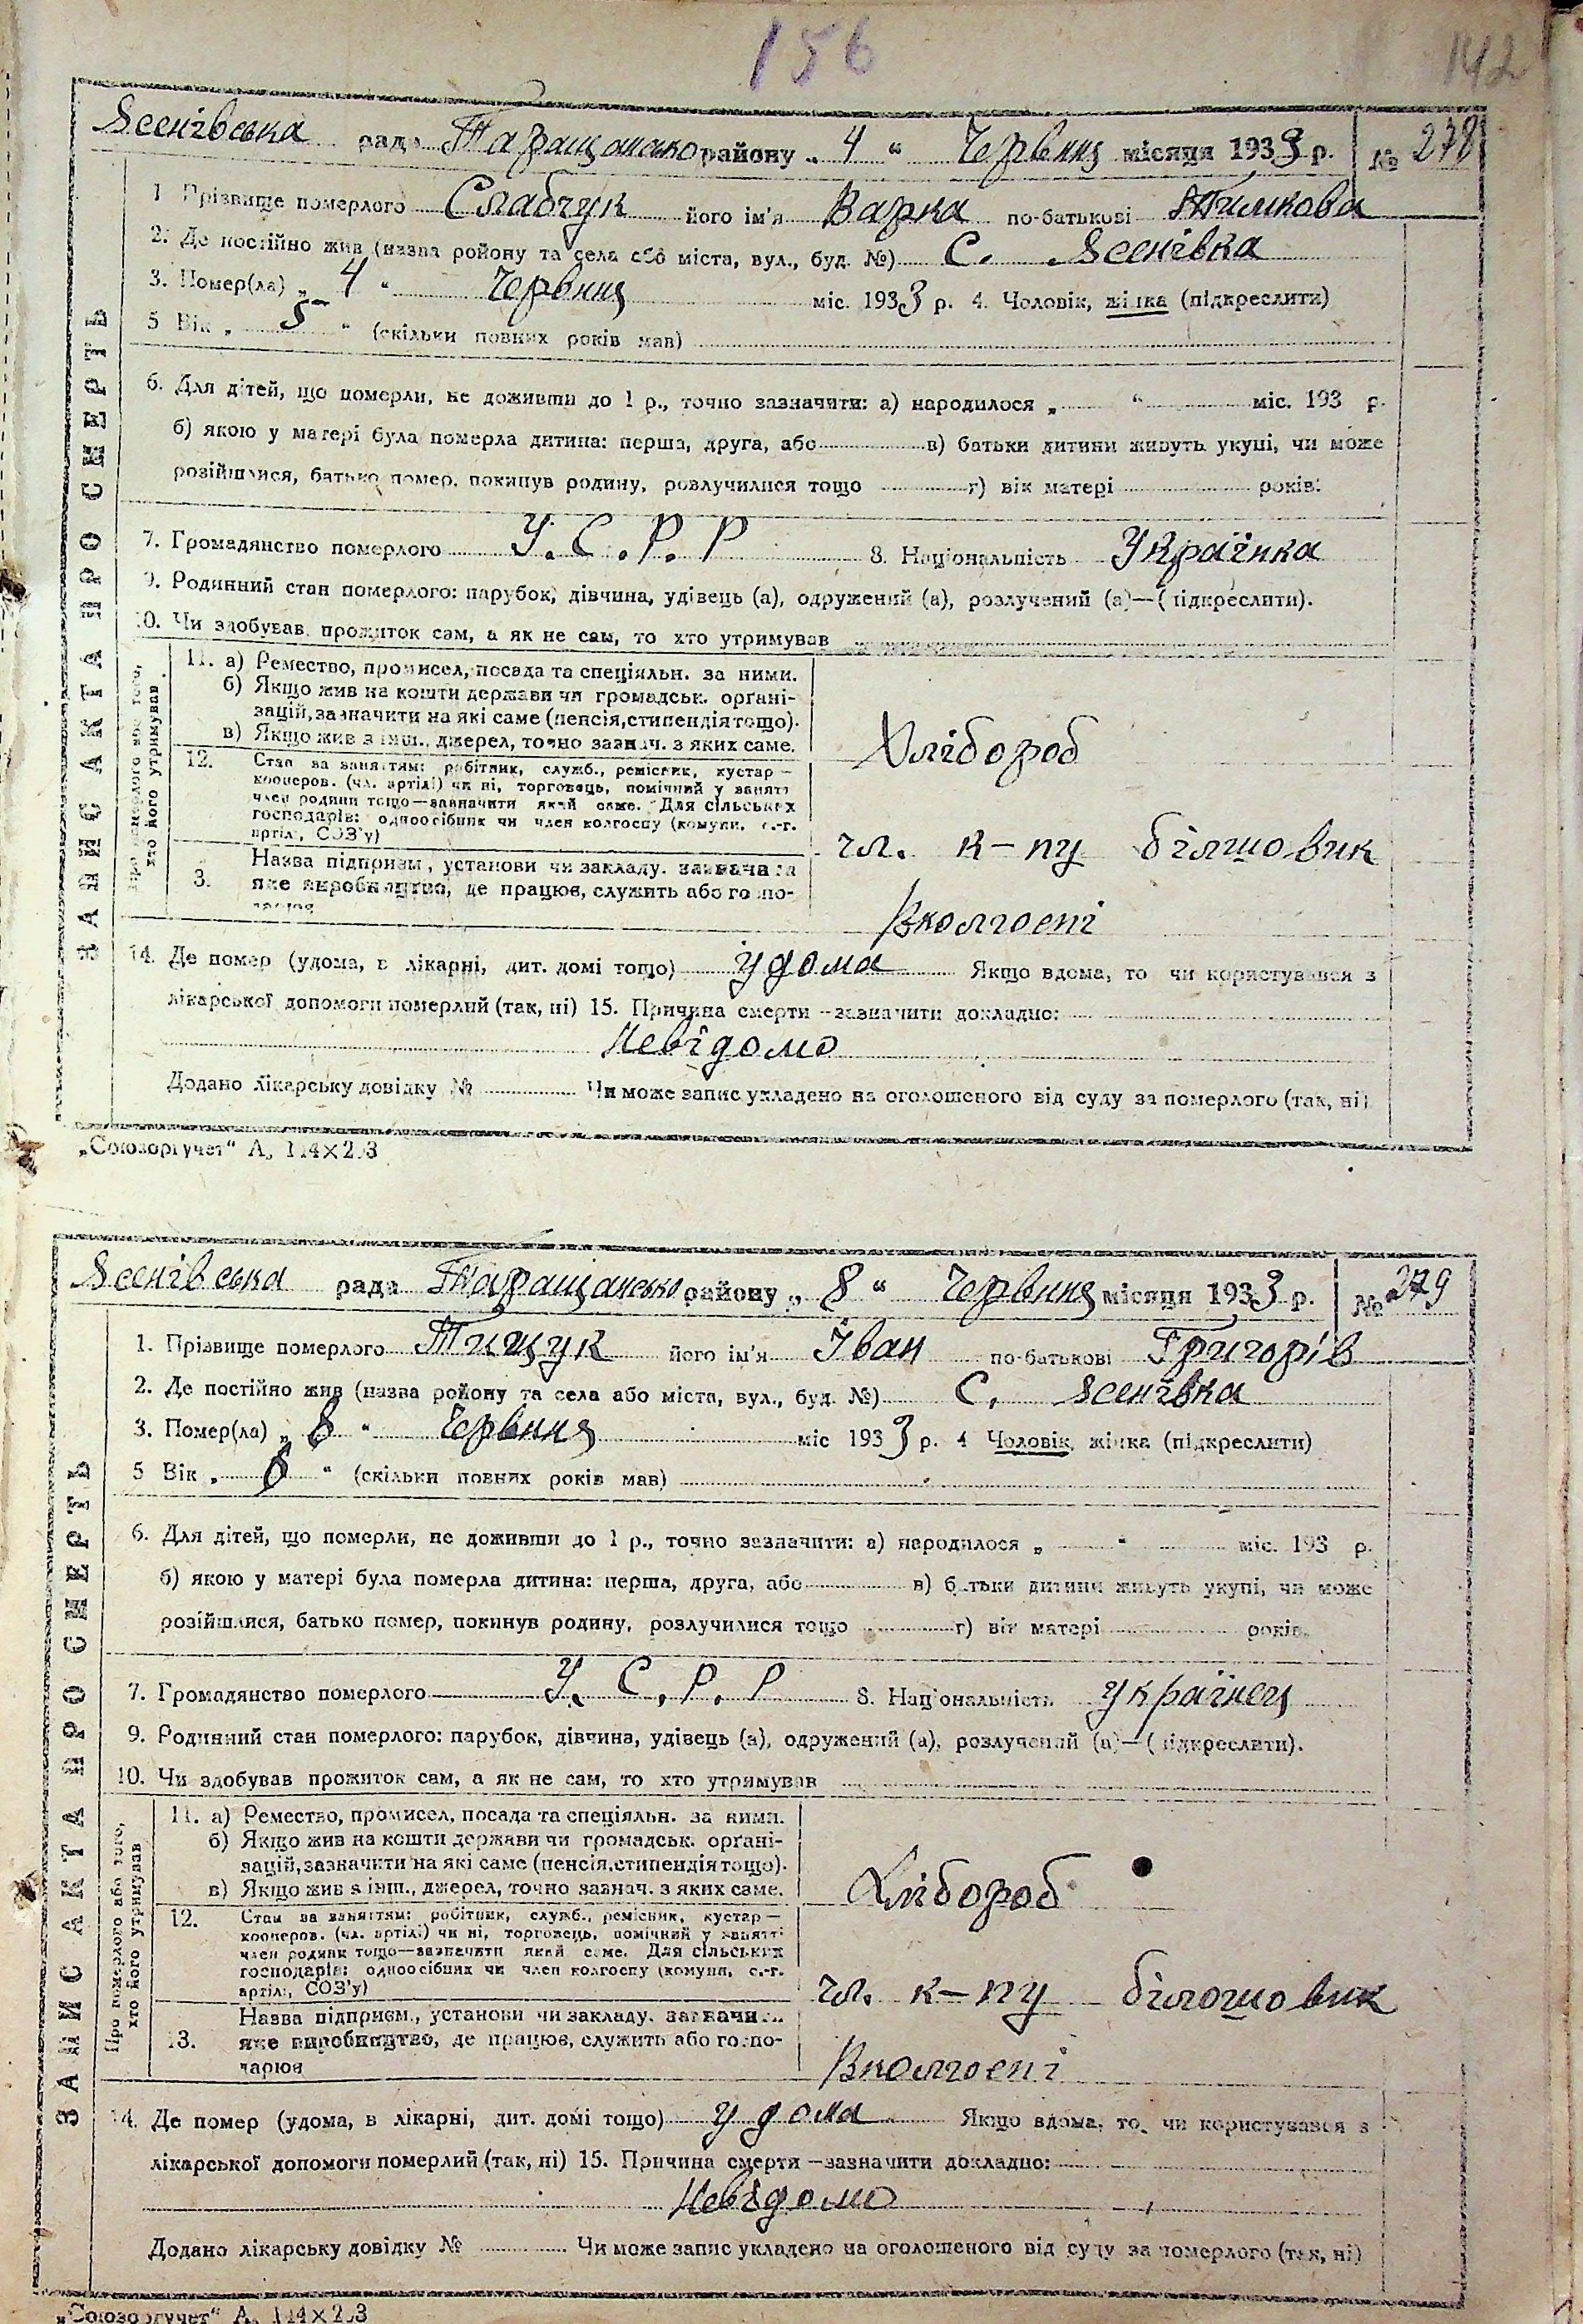 156
142
Ясенівська рада Таращансько району „ 4 “ Червня місяця 1933 р. № 278
1 Прізвище померлого Слабчук його ім'я Варка по-батькові Тимкова
2. Де постійно жив (назва ройону та села або міста, вул., буд. №) С. Ясенівка
3. Помер(ла) „ 4 “ Червня міс. 1933 р. 4. Чоловік, жінка (підкреслити)
5 Вік „ 5 “ (скільки повних років мав)
6. Для дітей, що померли, не доживши до 1 р., точно зазначити: а) народилося „ “ міс. 193 р.
б) якою у матері була померла дитина: перша, друга, або в) батьки дитини живуть укупі, чи може
розійшлися, батько помер, покинув родину, розлучилися тощо г) вік матері років.
7. Громадянство померлого У.С.Р.Р 8. Національність Українка
9. Родинний стан померлого: парубок, дівчина, удівець (а), одружений (а), розлучений (а)—(підкреслити).
10. Чи здобував прожиток сам, а як не сам, то хто утримував
11. а) Ремество, промисел, посада та спеціяльн. за ними.
б) Якщо жив на кошти держави чи громадськ. органі-
зацій, зазначити на які саме (пенсія, стипендія тощо).
в) Якщо жив з інш., джерел, точно зазнач. з яких саме.
Хлібороб
12. Стан за заняттям: робітник, служб., ремісник, кустар—
кооперов. (чл. артілі) чи ні, торговець, помічний у занятті
член родини тощо—зазначити який саме. Для сільських
господарів: одноосібник чи член колгоспу (комуни, с.-г.
артілі, СОЗ'у)
чл. к-пу більшовик
Назва підприєм., установи чи закладу. зазначити
3. яке виробництво, де працює, служить або госпо-
дарює
Вколгоспі
14. Де помер (удома, в лікарні, дит. домі тощо) удома Якщо вдома, то чи користувався з
лікарської допомоги померлий (так, ні) 15. Причина смерти—зазначити докладно:
Невідомо
Додано лікарську довідку № Чи може запис укладено на оголошеного від суду за померлого (так, ні)
ЗАПИС АКТА ПРО СМЕРТЬ
Про померлого або того,
хто його утримував
„Союзоргучет“ А₅ 114×203
Ясенівська рада Таращансько району „ 8 “ Червня місяця 1933 р. № 279
1. Прізвище померлого Тищук його ім'я Іван по-батькові Григорів
2. Де постійно жив (назва ройону та села або міста, вул., буд. №) С. Ясенівка
3. Помер(ла) „ 8 “ Червня міс 1933 р. 4 Чоловік, жінка (підкреслити)
5 Вік „ “ (скільки повних років мав)
6. Для дітей, що померли, не доживши до 1 р., точно зазначити: а) народилося „ “ міс. 193 р.
б) якою у матері була померла дитина: перша, друга, або в) батьки дитини живуть укупі, чи може
розійшлися, батько помер, покинув родину, розлучилися тощо г) вік матері років.
7. Громадянство померлого У.С.Р.Р 8. Національність Українец
9. Родинний стан померлого: парубок, дівчина, удівець (а), одружений (а), розлучений (а)—(підкреслити).
10. Чи здобував прожиток сам, а як не сам, то хто утримував
11. а) Ремество, промисел, посада та спеціяльн. за ними.
б) Якщо жив на кошти держави чи громадськ. органі-
зацій, зазначити на які саме (пенсія, стипендія тощо).
в) Якщо жив з інш., джерел, точно зазнач. з яких саме.
Хлібороб
12. Стан за заняттям: робітник, служб., ремісник, кустар—
кооперов. (чл. артілі) чи ні, торговець, помічний у занятті
член родини тощо—зазначити який саме. Для сільських
господарів: одноосібник чи член колгоспу (комуни, с.-г.
артілі, СОЗ'у)
чл. к-пу більшовик
Назва підприєм., установи чи закладу. зазначити
13. яке виробництво, де працює, служить або госпо-
дарює
Вколгоспі
14. Де помер (удома, в лікарні, дит. домі тощо) удома Якщо вдома, то чи користувався з
лікарської допомоги померлий (так, ні) 15. Причина смерти—зазначити докладно:
Невідомо
Додано лікарську довідку № Чи може запис укладено на оголошеного від суду за померлого (так, ні)
ЗАПИС АКТА ПРО СМЕРТЬ
Про померлого або того,
хто його утримував
„Союзоргучет“ А₅ 114×203